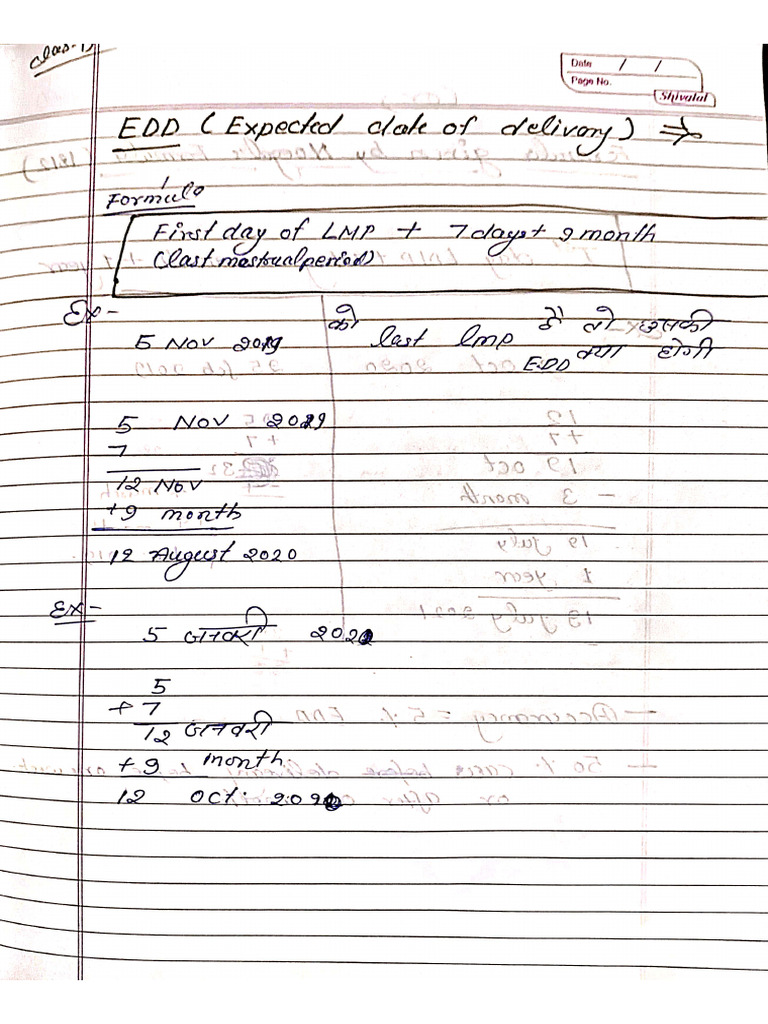 clas-1
Date / /
Page No.
Shivalal
EDD (Expected date of delivery) ⇒
Formula
First day of LMP + 7 days + 9 month
(last mestrual period)
Ex-
5 Nov 2019 को last lmp है तो उसकी
EDD क्या होगी
5 Nov 2019
7
12 Nov
+9 month
12 August 2020
Ex-
5 जनवरी 2020
5
+ 7
12 जनवरी
+ 9 month
12 oct. 2020